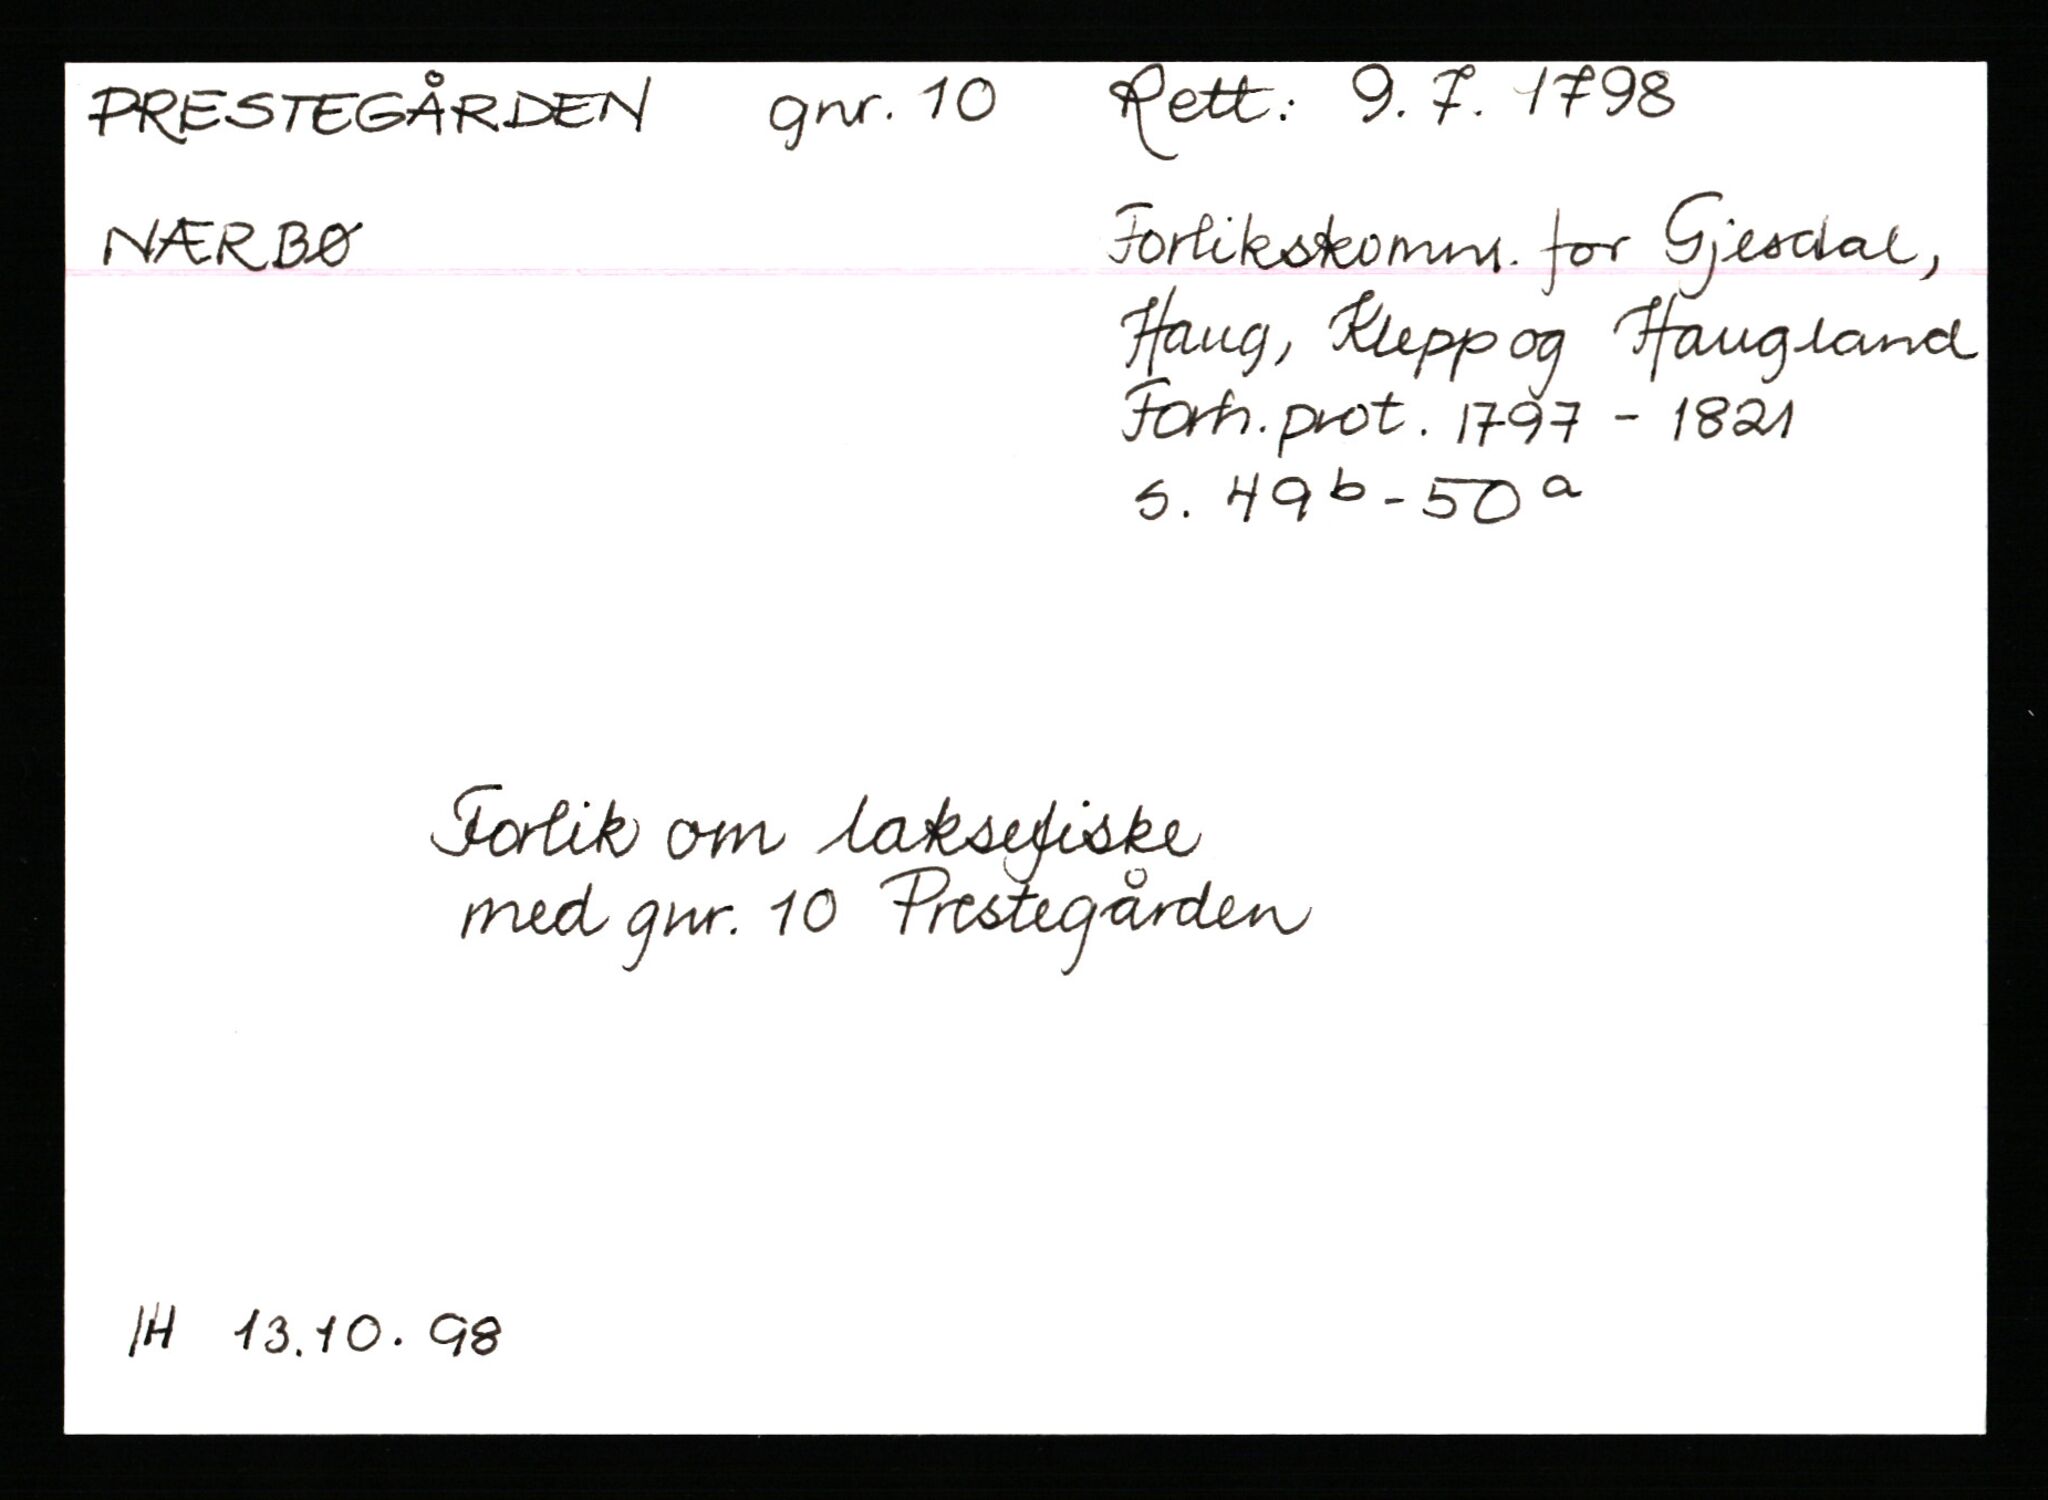 PRESTEGÅRDEN gnr. 10 Rett: 9. 7. 1798
NÆRBØ
Forlikskomm. for Gjesdal,
Haug, Klepp og Haugland
Forh. prot. 1797 - 1821
s. 49 b - 50 a
Forlik om laksefiske
med gnr. 10 Prestegården
IH 13.10.98